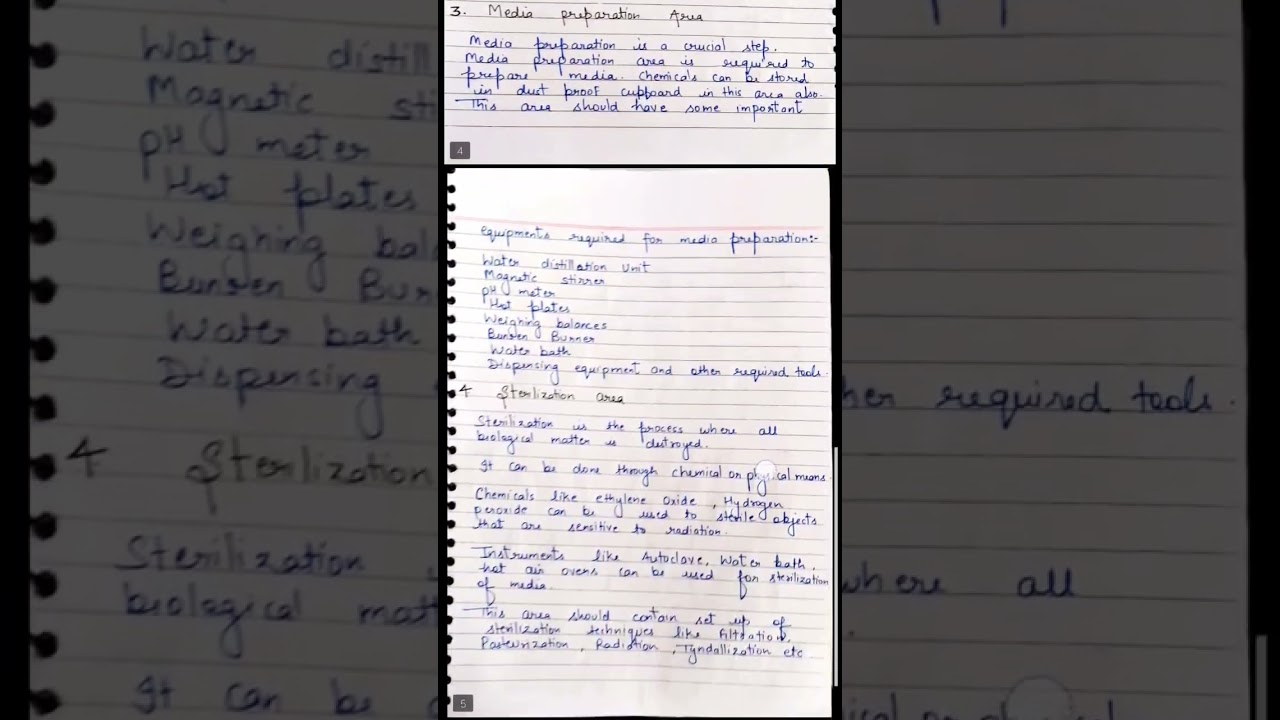 3. Media preparation Area
Media preparation is a crucial step.
Media preparation area is required to
prepare media. Chemicals can be stored
in dust proof cupboard in this area also.
This area should have some important
4
equipments required for media preparation:-
Water distillation Unit
Magnetic stirrer
pH meter
Hot plates
Weighing balances
Bunsen Burner
Water bath
Dispensing equipment and other required tools.
4 Sterlization area
Sterilization is the process where all
biological matter is destroyed.
It can be done through chemical or physical means.
Chemicals like ethylene oxide, Hydrogen
peroxide can be used to sterile objects
that are sensitive to radiation.
Instruments like Autoclave, Water bath,
hot air ovens can be used for sterilization
of media.
This area should contain set up of
sterilization techniques like filtration,
Pasteurization, Radiation, Tyndallization etc
5